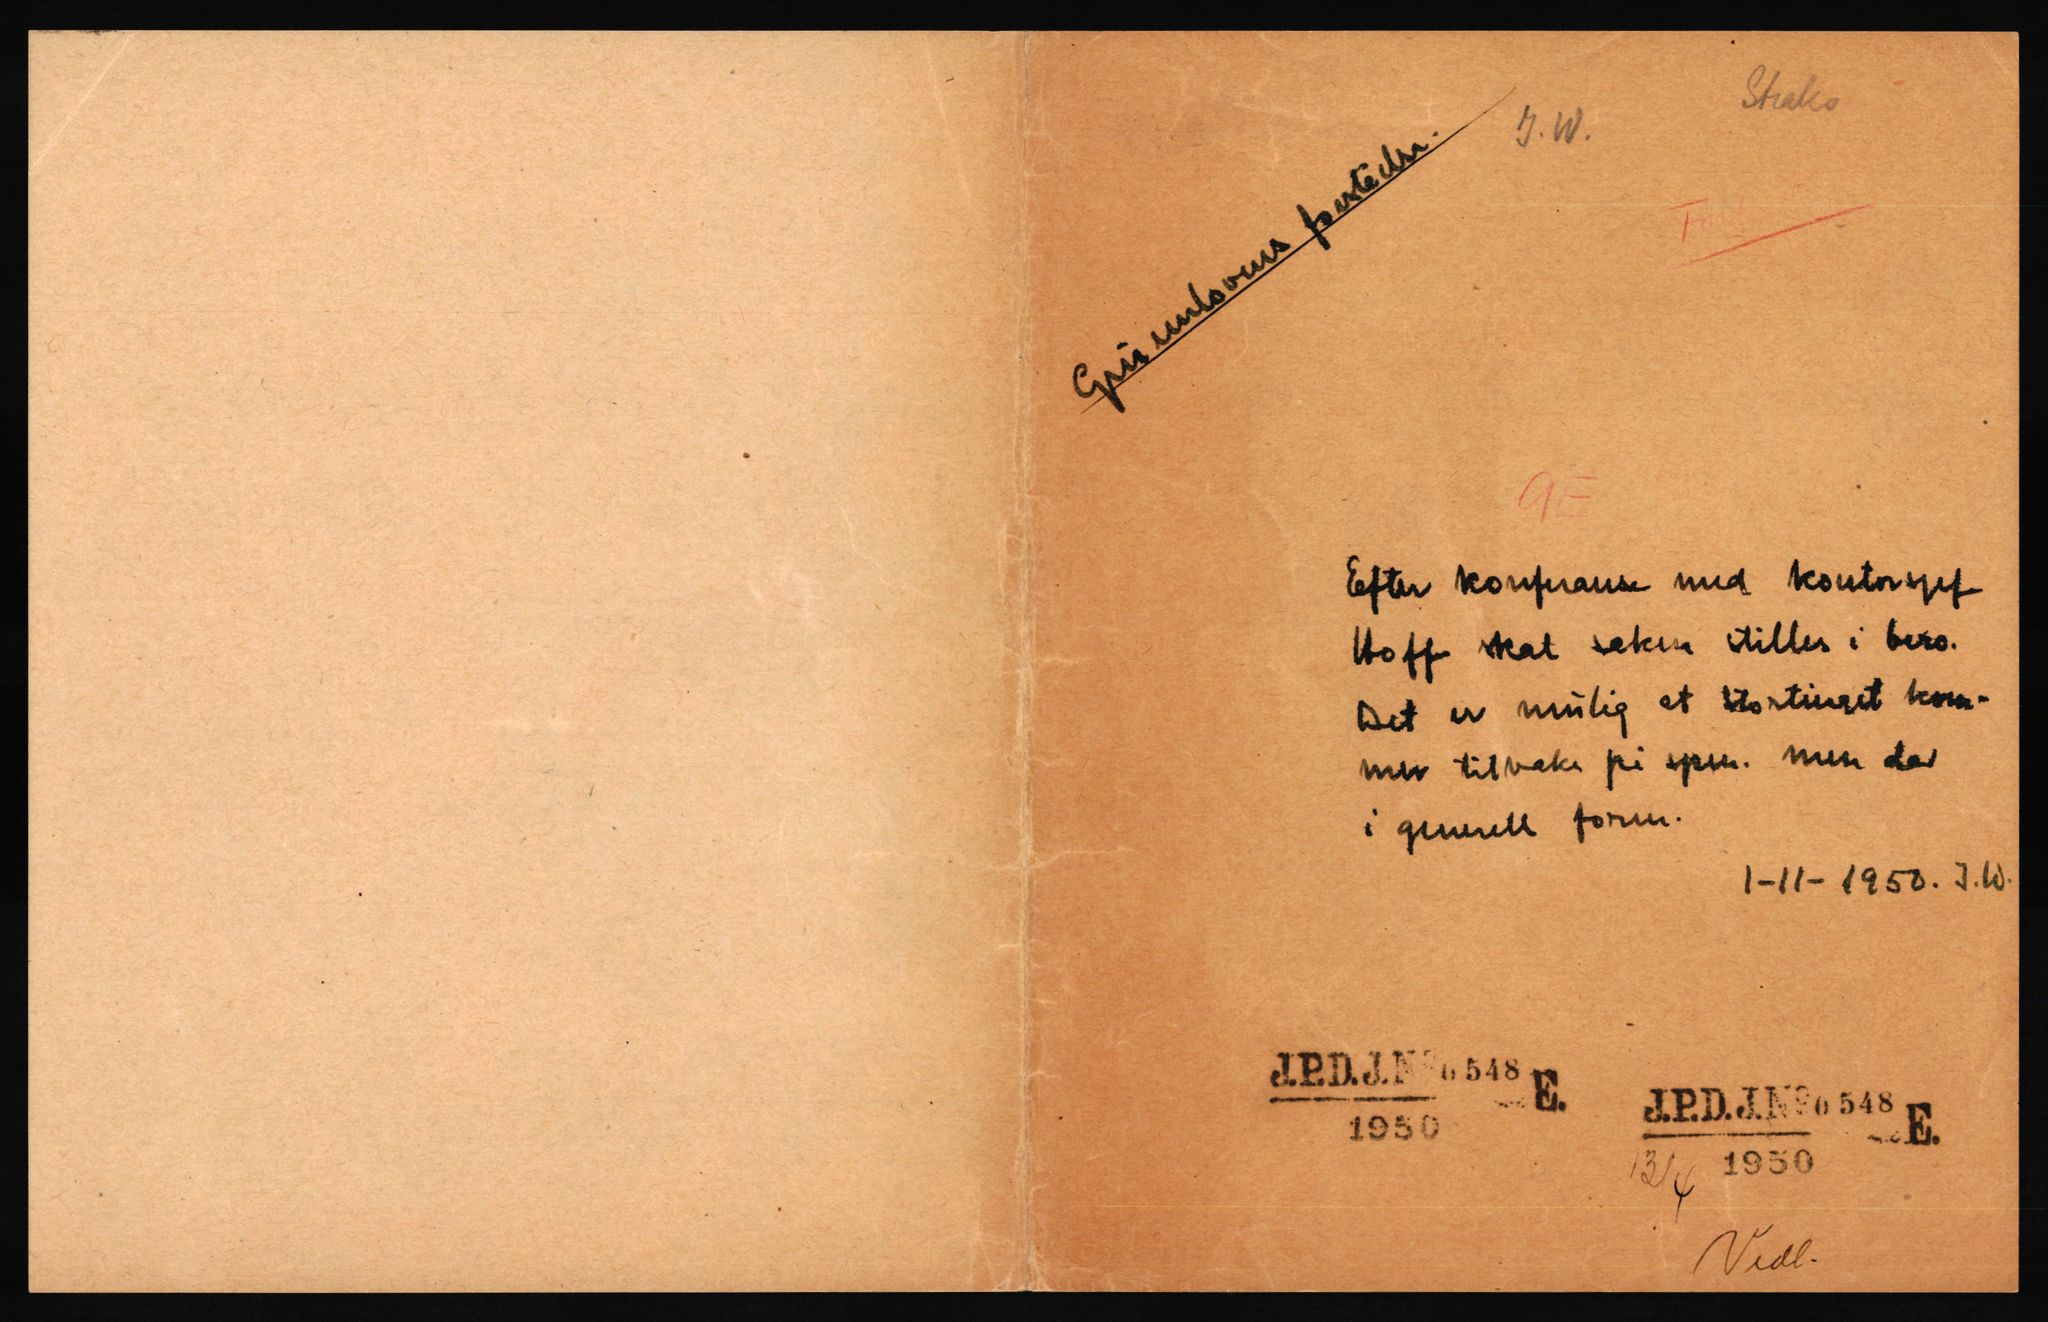 Straks
J.W.
Grunnlovens
9E
Efter konferanse med kontorsjef
Hoff skal saken stilles i bero.
Det er mulig at Stortinget kom-
mer tilbake på spm. men da
i generell form.
1-11-1950. J.W.
J.P.D.J.Nº 0548 E.
1950
J.P.D.J.Nº 0548 E.
13/4 1950
Vedl.